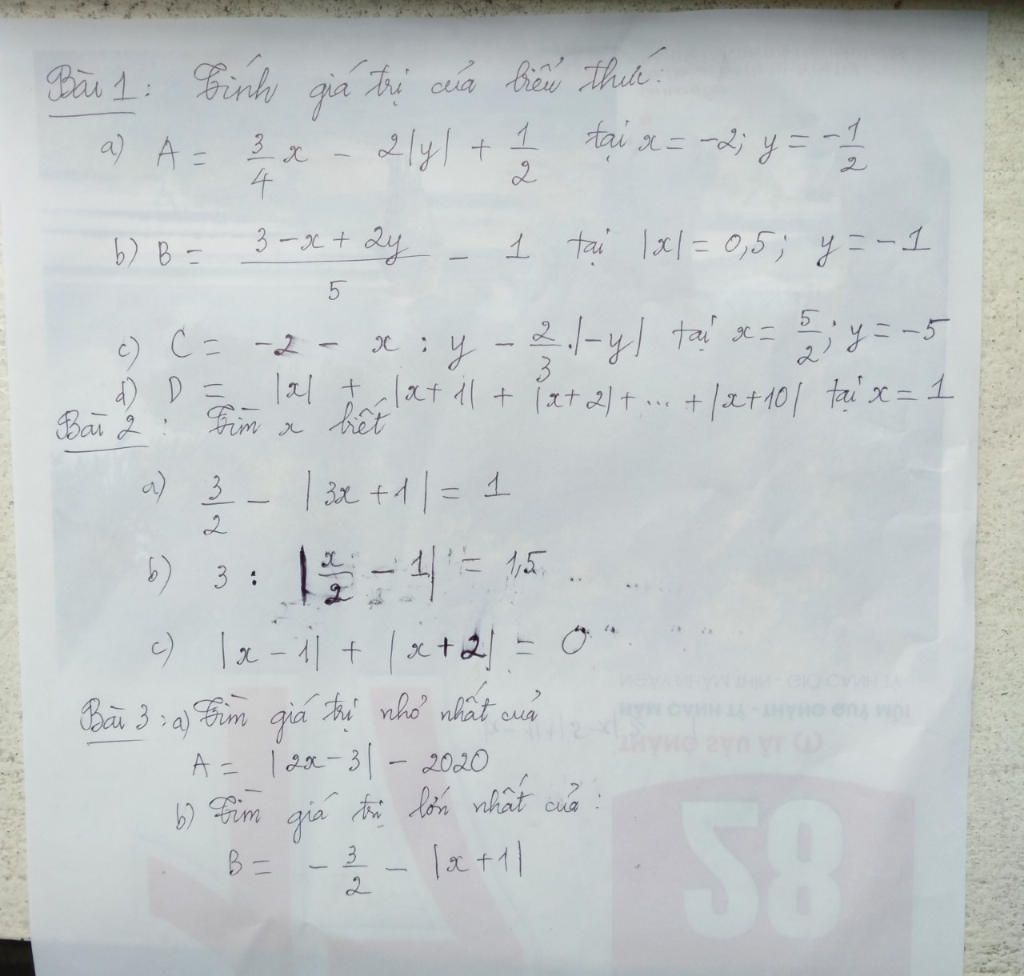 Bài 1: Tính giá trị của biểu thức:
a) A = 3/4 x - 2|y| + 1/2 tại x = -2; y = -1/2
b) B = (3 - x + 2y)/5 - 1 tại |x| = 0,5; y = -1
c) C = -2 - x : y - 2/3 .|-y| tại x = 5/2; y = -5
d) D = |x| + |x+1| + |x+2| + ... + |x+10| tại x = 1
Bài 2: Tìm x biết
a) 3/2 - |3x+1| = 1
b) 3 : |x/2 - 1| = 1,5
c) |x-1| + |x+2| = 0
Bài 3: a) Tìm giá trị nhỏ nhất của
A = |2x-3| - 2020
b) Tìm giá trị lớn nhất của:
B = -3/2 - |x+1|
NGÀY NHÂM THÌN - GIỜ CANH TÝ
NĂM CANH TÝ - THÁNG QUÝ MÙI
THÁNG SÁU ÂL
28